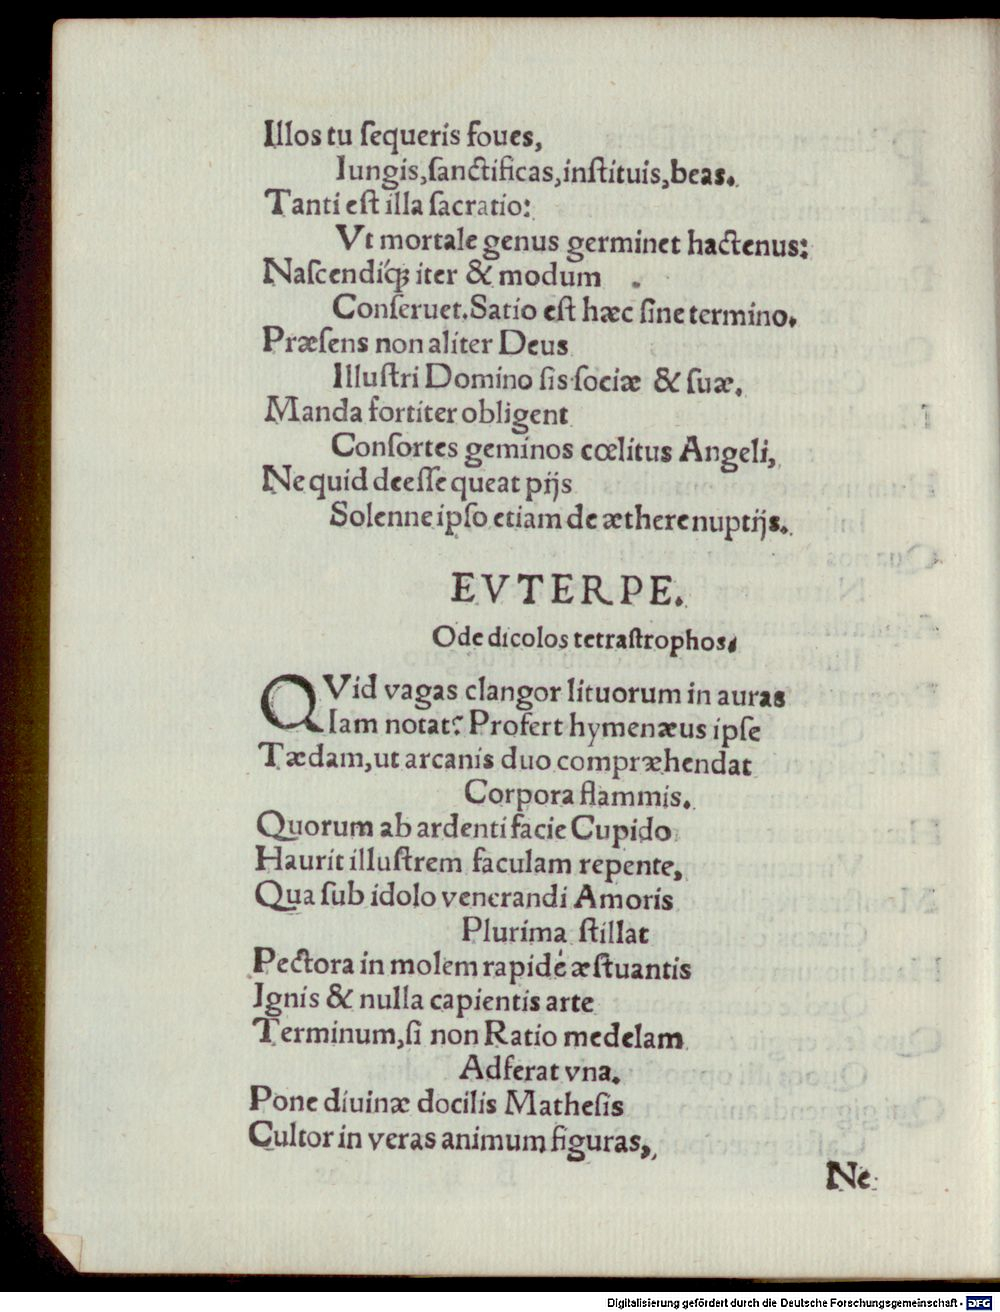 Illos tu ſequeris foues,
Iungis, ſanctificas, inſtituis, beas.
Tanti eſt illa ſacratio:
Vt mortale genus germinet hactenus:
Naſcendíq; iter & modum
Conſeruet. Satio eſt hæc ſine termino.
Præſens non aliter Deus
Illuſtri Domino ſis ſociæ & ſuæ.
Manda fortiter obligent
Conſortes geminos cœlitus Angeli,
Ne quid deeſſe queat pijs
Solenne ipſo etiam de æthere nuptijs.
EVTERPE.
Ode dicolos tetraſtrophos.
QVid vagas clangor lituorum in auras
Iam notat? Profert hymenæus ipſe
Tædam, ut arcanis duo compræhendat
Corpora flammis.
Quorum ab ardenti facie Cupido
Haurit illuſtrem faculam repente,
Qua ſub idolo venerandi Amoris
Plurima ſtillat
Pectora in molem rapidé æſtuantis
Ignis & nulla capientis arte
Terminum, ſi non Ratio medelam
Adferat vna.
Pone diuinæ docilis Matheſis
Cultor in veras animum figuras,
Ne
Digitalisierung gefördert durch die Deutsche Forschungsgemeinschaft - DFG